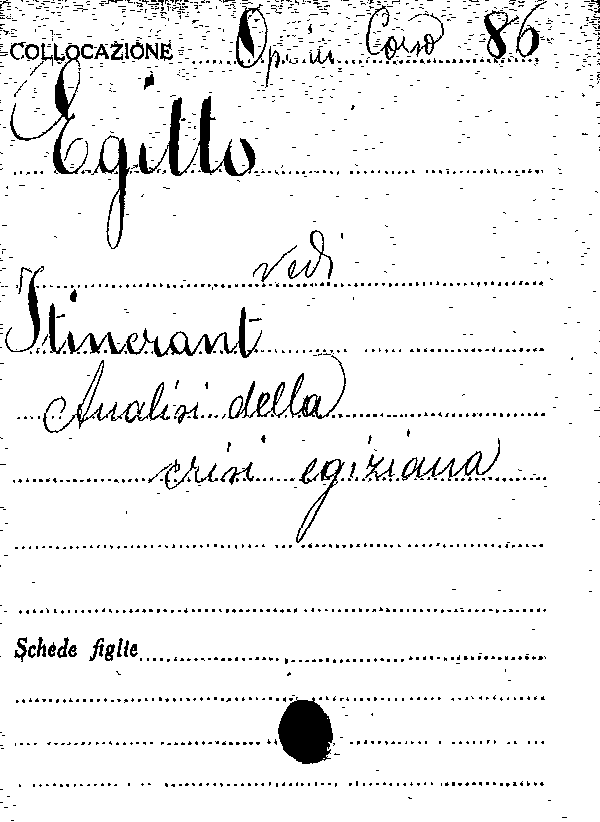 COLLOCAZIONE Op. in Corso 86
Egitto
vedi
Itinerant
Analisi della
crisi egiziana
Schede figlie